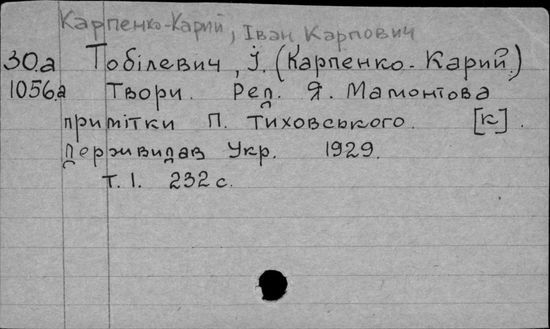 Карпенко-Карий, Іван Карпович
30.а Тобілевич, І. (Карпенко-Карий.)
1056.а Твори. Ред. Я. Мамонтова
примітки П. Тиховського. [К].
Державидав Укр. 1929.
т. 1. 232 с.